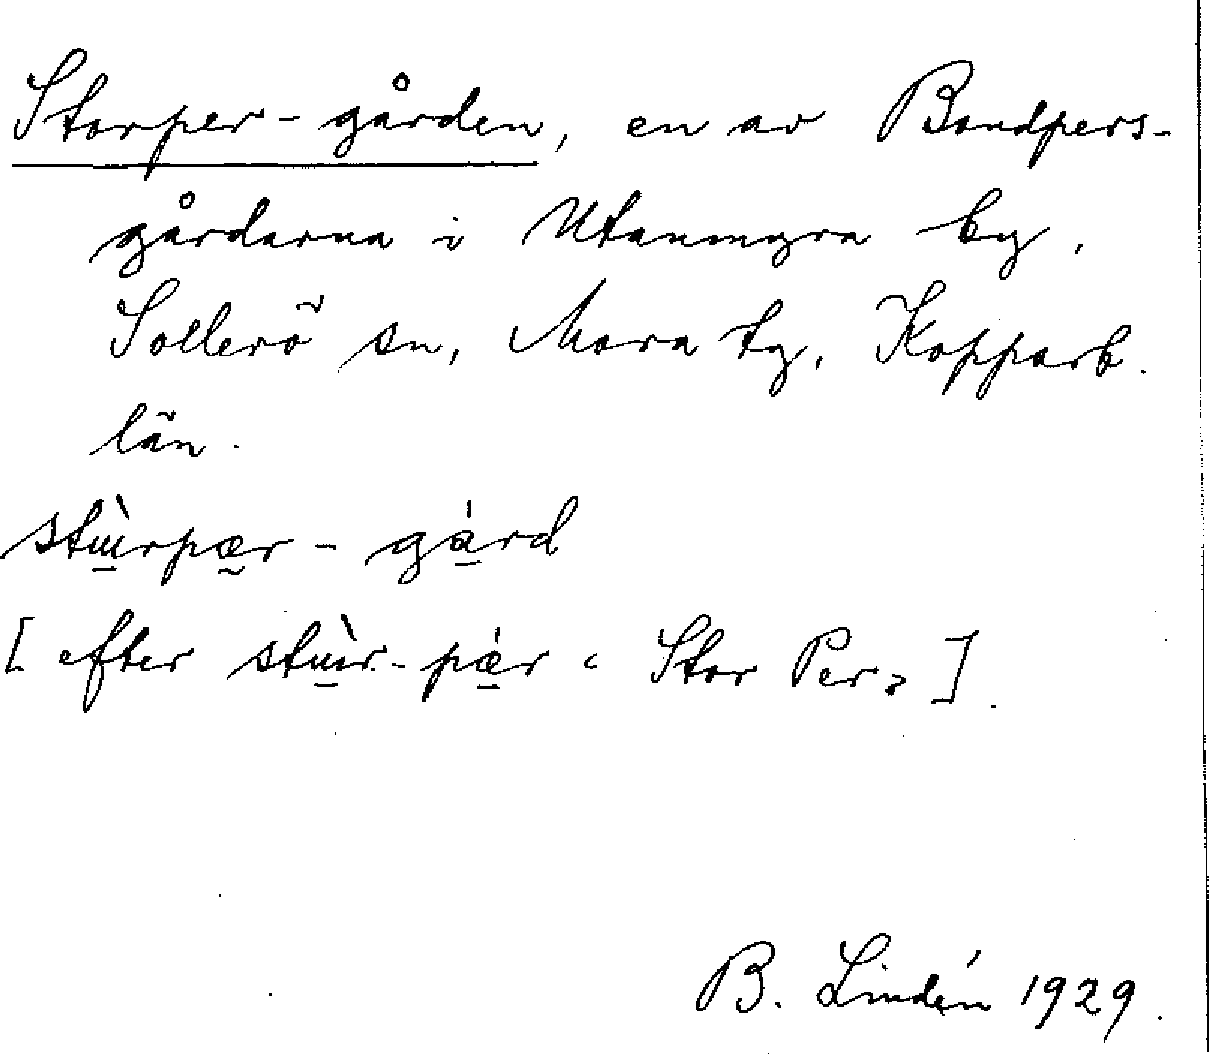 Storper-gården, en av Bondpers-
gårdarna i Utanmyra by,
Sollerö sn, Mora tg, Kopparb.
län.
stɯ̱̀rpæ̰r - gá̱rd
[ efter stɯ̱̀r-pǽ̱r ‹ Stor Per› ].
B. Lindén 1929.